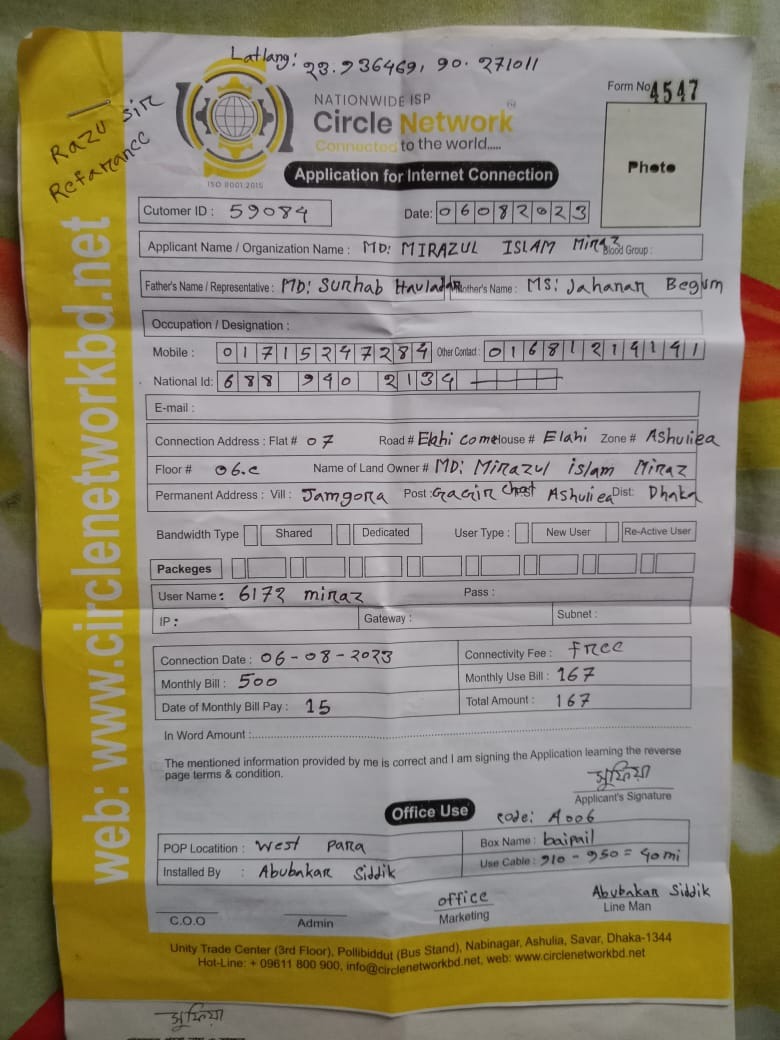 Latlang: 23.936469, 90.271011
Form No 4547
NATIONWIDE ISP
Circle Network
Connected to the world.....
ISO 9001:2015
Razu sir
Refarance
Photo
Application for Internet Connection
Cutomer ID : 59084 Date: 06082023
Applicant Name / Organization Name : MD: MIRAZUL ISLAM Miraz Blood Group :
Father's Name / Representative : MD: Surhab Hauladar Mother's Name : MS: Jahanar Begum
Occupation / Designation :
Mobile : 01715247284 Other Contact : 01681214141
National Id: 688 940 2134
E-mail :
Connection Address : Flat # 07 Road # Elahi House # Elahi Zone # Ashuliea
Floor # 06.c Name of Land Owner # MD: Mirazul islam Miraz
Permanent Address : Vill : Jamgora Post : Ashuliea Dist: Dhaka
Bandwidth Type Shared Dedicated User Type : New User Re-Active User
Packeges
User Name : 6172 miraz Pass :
IP : Gateway : Subnet :
Connection Date : 06-08-2023 Connectivity Fee : Free
Monthly Bill : 500 Monthly Use Bill : 167
Date of Monthly Bill Pay : 15 Total Amount : 167
In Word Amount :
The mentioned information provided by me is correct and I am signing the Application learning the reverse
page terms & condition.
সুফিয়া
Applicant's Signature
Office Use
code: A006
POP Locatition : West Para Box Name : baipail
Installed By : Abubakar Siddik Use Cable : 910 - 950 = 40 mi
office Abubakar Siddik
C.O.O Admin Marketing Line Man
Unity Trade Center (3rd Floor), Pollibiddut (Bus Stand), Nabinagar, Ashulia, Savar, Dhaka-1344
Hot-Line: + 09611 800 900, info@circlenetworkbd.net, web: www.circlenetworkbd.net
web: www.circlenetworkbd.net
সুফিয়া